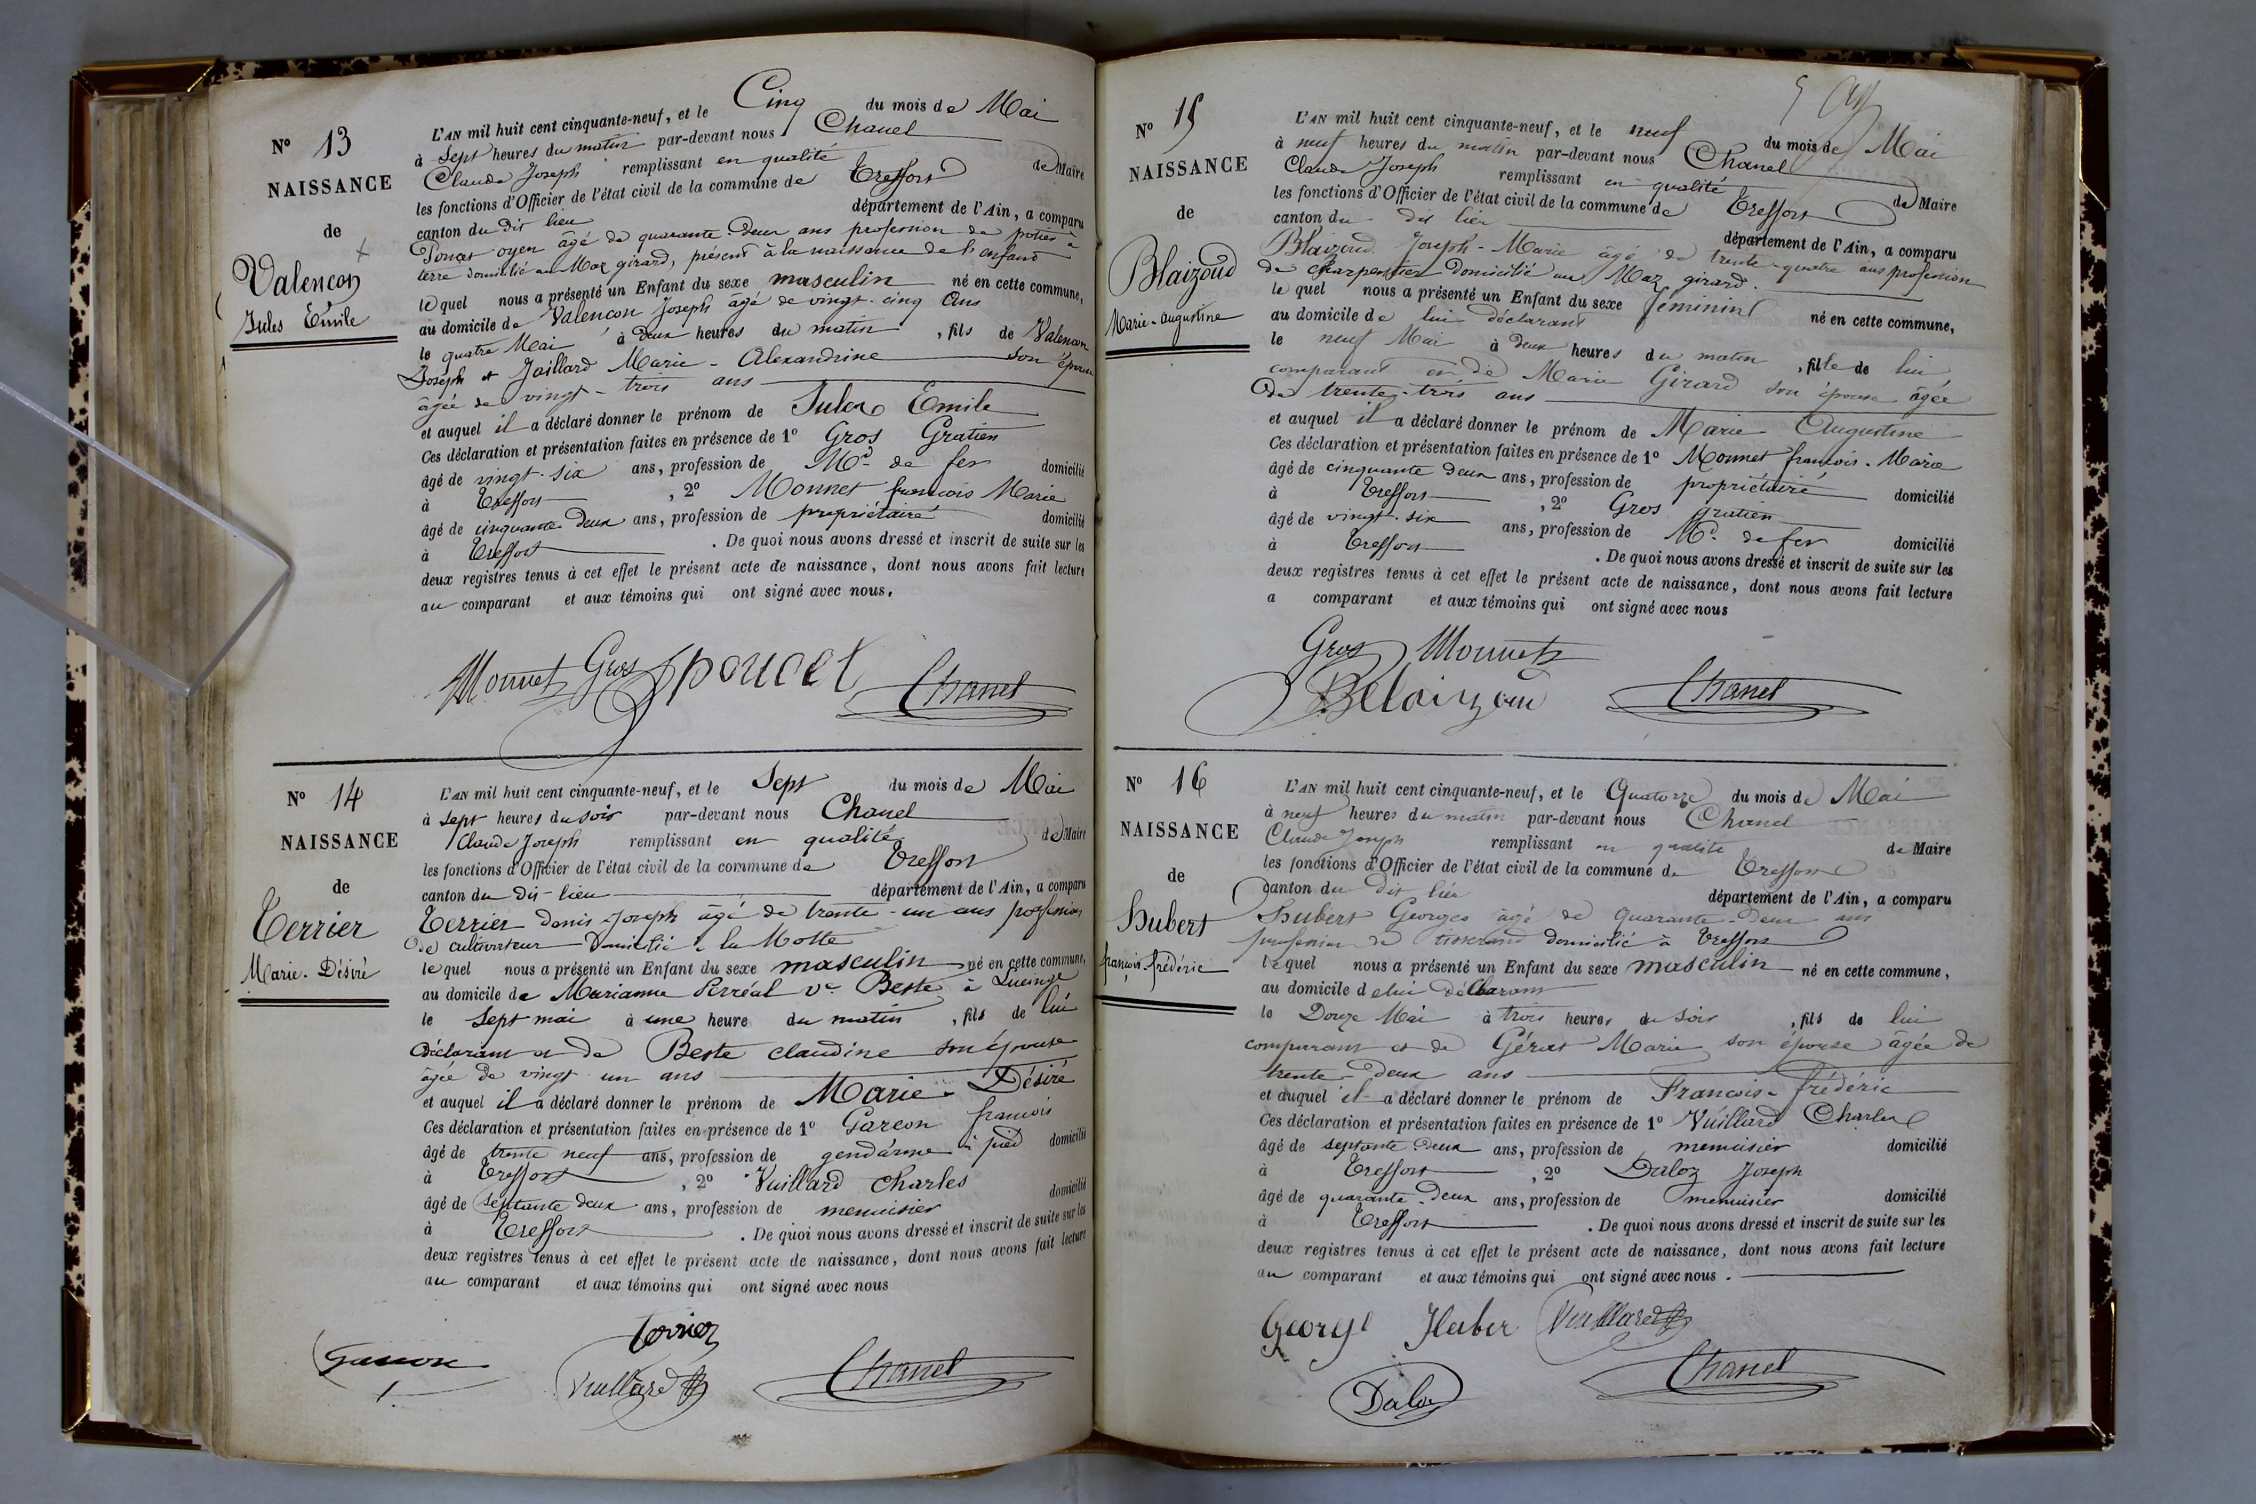 N° 13
NAISSANCE
de
Valencon
Jules Emile
L'AN mil huit cent cinquante-neuf, et le Cinq du mois de Mai
à Sept heures du matin par-devant nous Chanel
Claude Joseph remplissant en qualité de Maire
les fonctions d'Officier de l'état civil de la commune de Treffort
canton du dit lieu département de l'Ain, a comparu
oyen âgé de quarante-deux ans profession de potier à
terre domicilié au Maz girard, présent à la naissance de l'enfant
lequel nous a présenté un Enfant du sexe masculin né en cette commune,
au domicile de Valencon Joseph âgé de vingt-cinq ans
le quatre Mai à deux heures du matin, fils de Valencon
Joseph et Jaillard Marie-Alexandrine son épouse
âgée de vingt-trois ans
et auquel il a déclaré donner le prénom de Jules Emile
Ces déclaration et présentation faites en présence de 1° Gros Gratien
âgé de vingt-six ans, profession de Md de fer domicilié
à Treffort, 2° Monnet francois Marie
âgé de cinquante deux ans, profession de propriétaire domicilié
à Treffort. De quoi nous avons dressé et inscrit de suite sur les
deux registres tenus à cet effet le présent acte de naissance, dont nous avons fait lecture
au comparant et aux témoins qui ont signé avec nous.
Monnet Gros poucet Chanel
N° 14
NAISSANCE
de
Terrier
Marie-Désiré
L'AN mil huit cent cinquante-neuf, et le Sept du mois de Mai
à sept heures du soir par-devant nous Chanel
Claude Joseph remplissant en qualité de Maire
les fonctions d'Officier de l'état civil de la commune de Treffort
canton du dit-lieu département de l'Ain, a comparu
Terrier denis Joseph âgé de trente-un ans profession
de cultivateur domicilié à la Motte
lequel nous a présenté un Enfant du sexe masculin né en cette commune,
au domicile de Marianne Perréal ve Beste à
le Sept mai à une heure du matin, fils de lui
déclarant et de Beste claudine son épouse
âgée de vingt un ans
et auquel il a déclaré donner le prénom de Marie-Désiré
Ces déclaration et présentation faites en présence de 1° Garcon francois
âgé de trente neuf ans, profession de gendarme à pied domicilié
à Treffort, 2° Vuillard Charles
âgé de septante deux ans, profession de menuisier domicilié
à Treffort. De quoi nous avons dressé et inscrit de suite sur les
deux registres tenus à cet effet le présent acte de naissance, dont nous avons fait lecture
au comparant et aux témoins qui ont signé avec nous
Terrier
Garcon Vuillard Chanel
N° 15
NAISSANCE
de
Blaizoud
Marie-augustine
L'AN mil huit cent cinquante-neuf, et le neuf du mois de Mai
à neuf heures du matin par-devant nous Chanel
Claude Joseph remplissant en qualité de Maire
les fonctions d'Officier de l'état civil de la commune de Treffort
canton du dit lieu département de l'Ain, a comparu
Blaizoud Joseph-Marie âgé de trente-quatre ans profession
de charpentier domicilié au Maz girard.
lequel nous a présenté un Enfant du sexe féminin né en cette commune,
au domicile de lui déclarant
le neuf Mai à deux heures du matin, fille de lui
comparant et de Marie Girard son épouse âgée
de trente-trois ans
et auquel il a déclaré donner le prénom de Marie Augustine
Ces déclaration et présentation faites en présence de 1° Monnet francois-Marie
âgé de cinquante deux ans, profession de propriétaire domicilié
à Treffort, 2° Gros gratien
âgé de vingt-six ans, profession de Md. de fer domicilié
à Treffort. De quoi nous avons dressé et inscrit de suite sur les
deux registres tenus à cet effet le présent acte de naissance, dont nous avons fait lecture
a comparant et aux témoins qui ont signé avec nous
Gros Monnet
Blaizoud Chanel
N° 16
NAISSANCE
de
Hubert
françois-frédéric
L'AN mil huit cent cinquante-neuf, et le Quatorze du mois de Mai
à neuf heures du matin par-devant nous Chanel
Claude Joseph remplissant en qualité de Maire
les fonctions d'Officier de l'état civil de la commune de Treffort
canton du dit lieu département de l'Ain, a comparu
Hubert Georges âgé de quarante-deux ans
profession de tisserand domicilié à Treffort
lequel nous a présenté un Enfant du sexe masculin né en cette commune,
au domicile de lui déclarant
le Douze Mai à trois heures du soir, fils de lui
comparant et de Gérat Marie son épouse âgée de
trente-deux ans
et auquel il a déclaré donner le prénom de Francois-frédéric
Ces déclaration et présentation faites en présence de 1° Vuillard Charles
âgé de septante-deux ans, profession de menuisier domicilié
à Treffort, 2° Daloz Joseph
âgé de quarante-deux ans, profession de menuisier domicilié
à Treffort. De quoi nous avons dressé et inscrit de suite sur les
deux registres tenus à cet effet le présent acte de naissance, dont nous avons fait lecture
au comparant et aux témoins qui ont signé avec nous.
George Huber Vuillard
Daloz Chanel